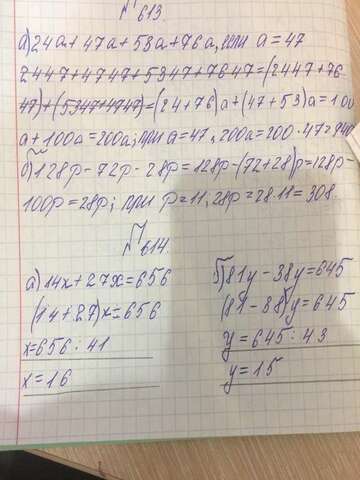 №613.
а) 24a + 47a + 53a + 76a, если a = 47
2447 + 4747 + 5347 + 7647 = (2447 + 76
47) + (5347 + 4747) = (24 + 76)a + (47 + 53)a = 100
a + 100a = 200a; при a = 47, 200a = 200 · 47 = 940
б) 128p - 72p - 28p = 128p - (72 + 28)p = 128p -
100p = 28p; при p = 11, 28p = 28 · 11 = 308.
№614.
а) 14x + 27x = 656
(14 + 27)x = 656
x = 656 : 41
x = 16
б) 81y - 38y = 645
(81 - 38)y = 645
y = 645 : 43
y = 15